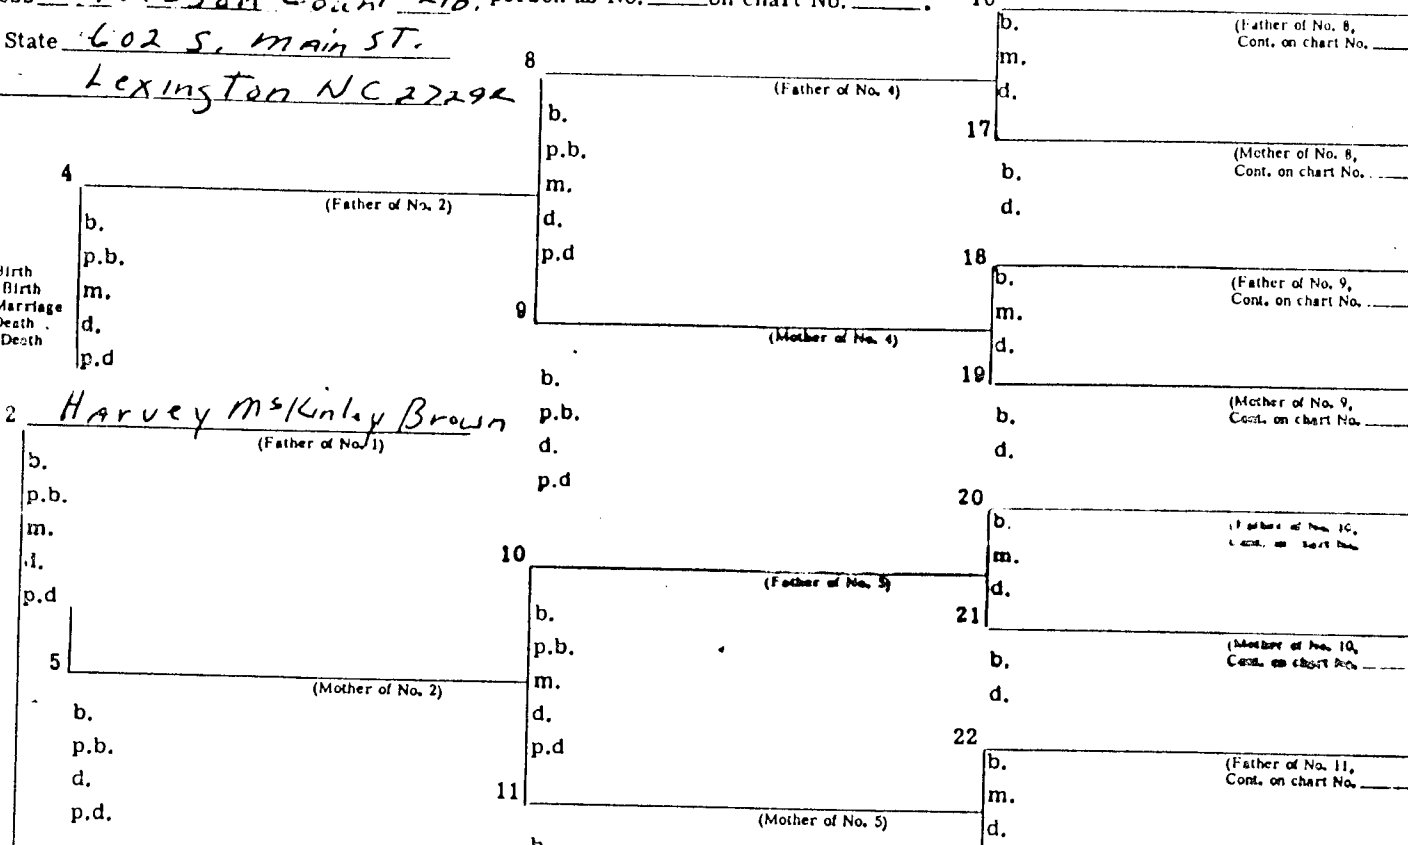 person as No. on chart No. .
State 602 S. Main ST.
Lexington NC 27292
8
(Father of No. 4)
b.
p.b.
m.
d.
p.d
4
(Father of No. 2)
b.
p.b.
m.
d.
p.d
Birth
Birth
Marriage
Death
Death
9
(Mother of No. 4)
b.
p.b.
d.
p.d
2 Harvey McKinley Brown
(Father of No. 1)
b.
p.b.
m.
d.
p.d
5
(Mother of No. 2)
b.
p.b.
d.
p.d.
10
(Father of No. 5)
b.
p.b.
m.
d.
p.d
11
(Mother of No. 5)
b.
16
b.
m.
d.
(Father of No. 8,
Cont. on chart No.
17
(Mother of No. 8,
Cont. on chart No.
b.
d.
18
b.
m.
d.
(Father of No. 9,
Cont. on chart No.
19
(Mother of No. 9,
Cont. on chart No.
b.
d.
20
b.
m.
d.
(Father of No. 10,
Cont. on chart No.
21
(Mother of No. 10,
Cont. on chart No.
b.
d.
22
b.
m.
d.
(Father of No. 11,
Cont. on chart No.